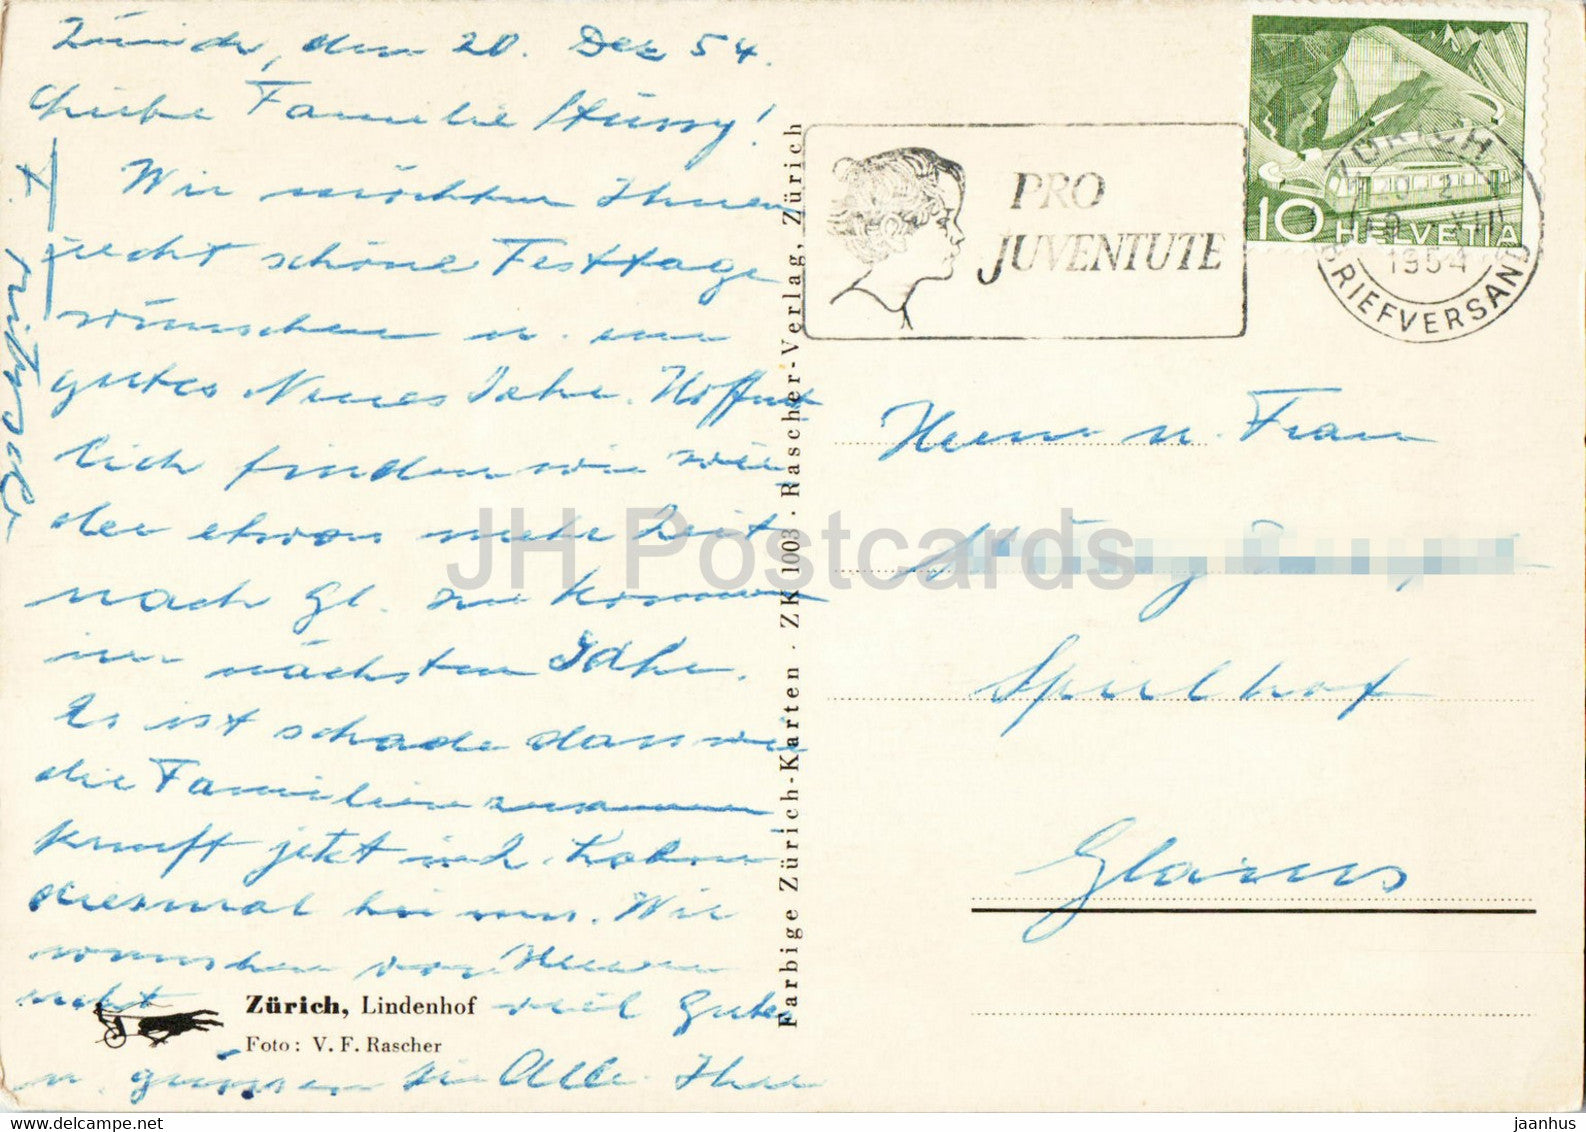 Zürich, den 20. Dez 54.
Liebe Familie Stüssy!
Wir möchten Ihnen
recht schöne Festtage
wünschen u. ein
gutes Neues Jahr. Hoffent
lich finden wir wie
der etwas mehr Zeit
nach Gl. zu kommen
im nächsten Jahr.
Es ist schade dass wir
die Familien zusammen
kunft jetzt nicht haben
diesmal bei uns. Wir
wünschen von Herzen
recht viel Gutes
u. grüssen Sie Alle. Ihre
Zürich, Lindenhof
Foto: V. F. Rascher
Farbige Zürich-Karten · ZK 1003 · Rascher-Verlag, Zürich
PRO
JUVENTUTE
10 HELVETIA
ZÜRICH 2
1954
BRIEFVERSAND
Herrn u. Frau
Spielhof
Glarus
JH Postcards
www.delcampe.net
jaanhus